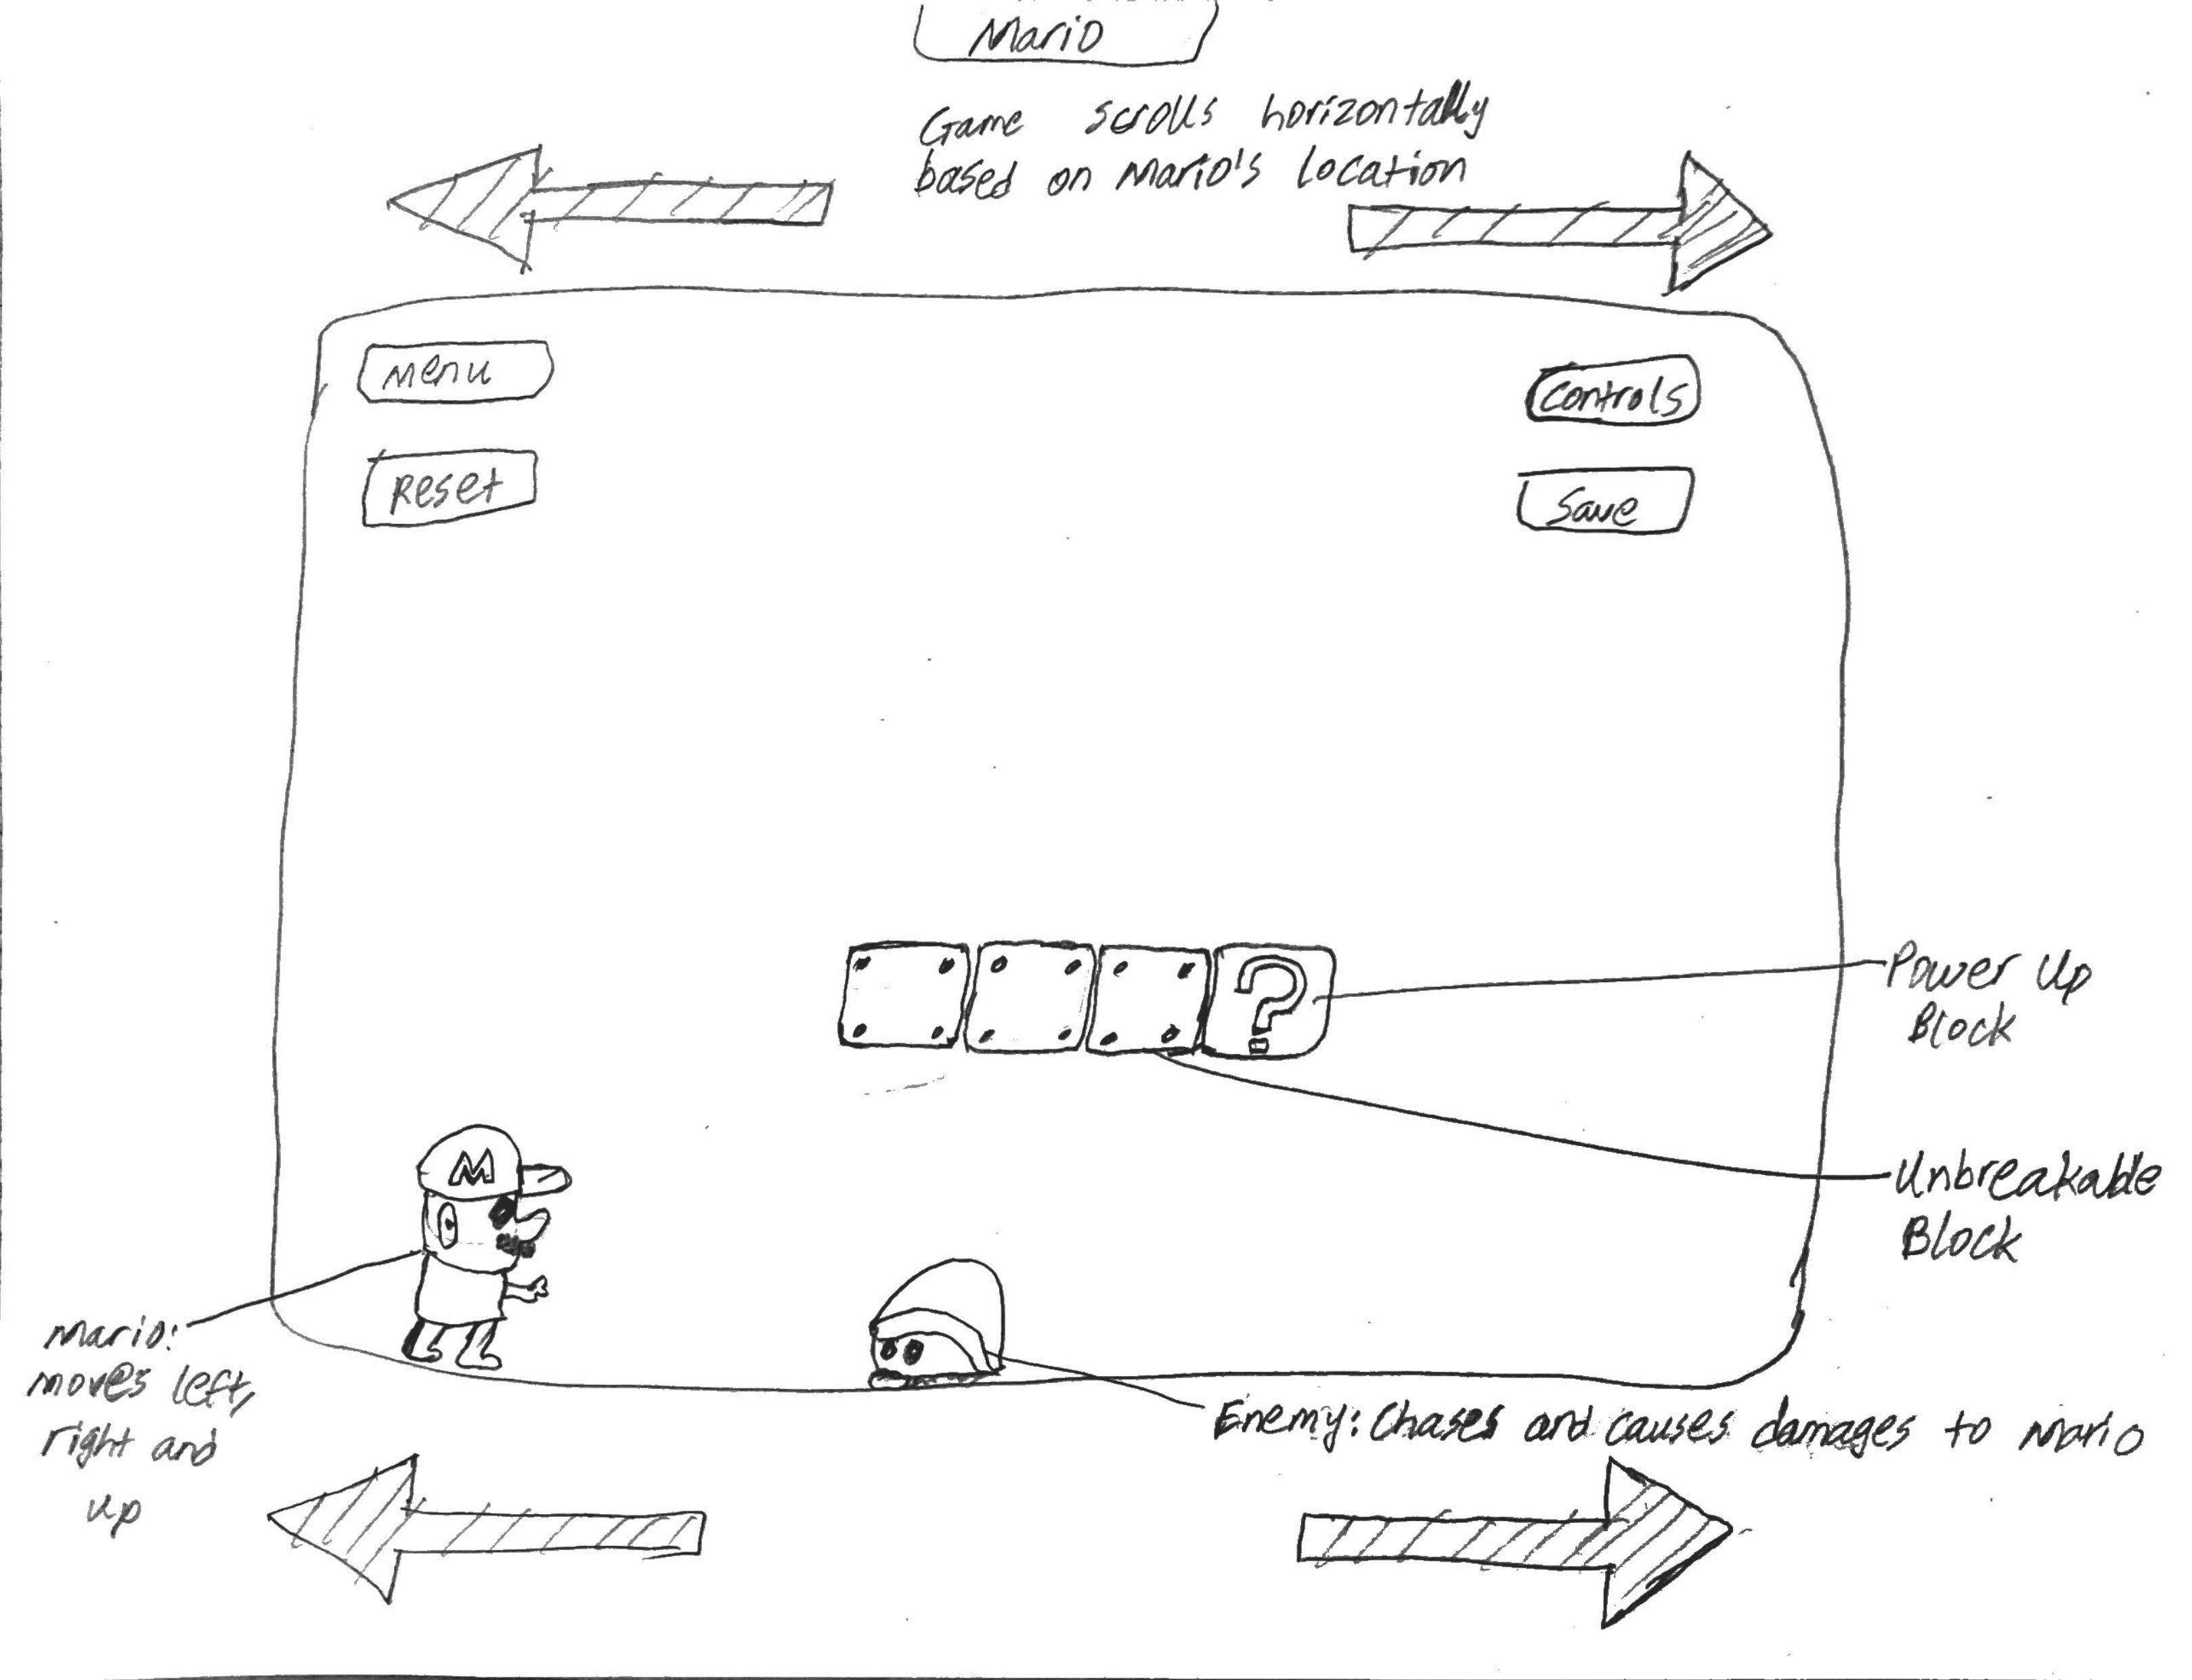 Mario
Game scrolls horizontally
based on Mario's location
Menu
Controls
Reset
Save
?
Power Up
Block
M
Unbreakable
Block
Mario:
moves left,
right and
up
Enemy: Chases and causes damages to Mario